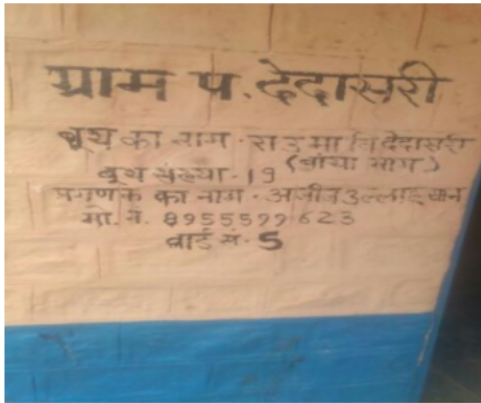 ग्राम प. देदासरी
बूथ का नाम - रा उ मा वि देदासरी
(बांया भाग)
बूथ संख्या - 19
प्रगणक का नाम - अजीज उल्लाह खान
मो. नं. 8955599623
वार्ड सं. 5